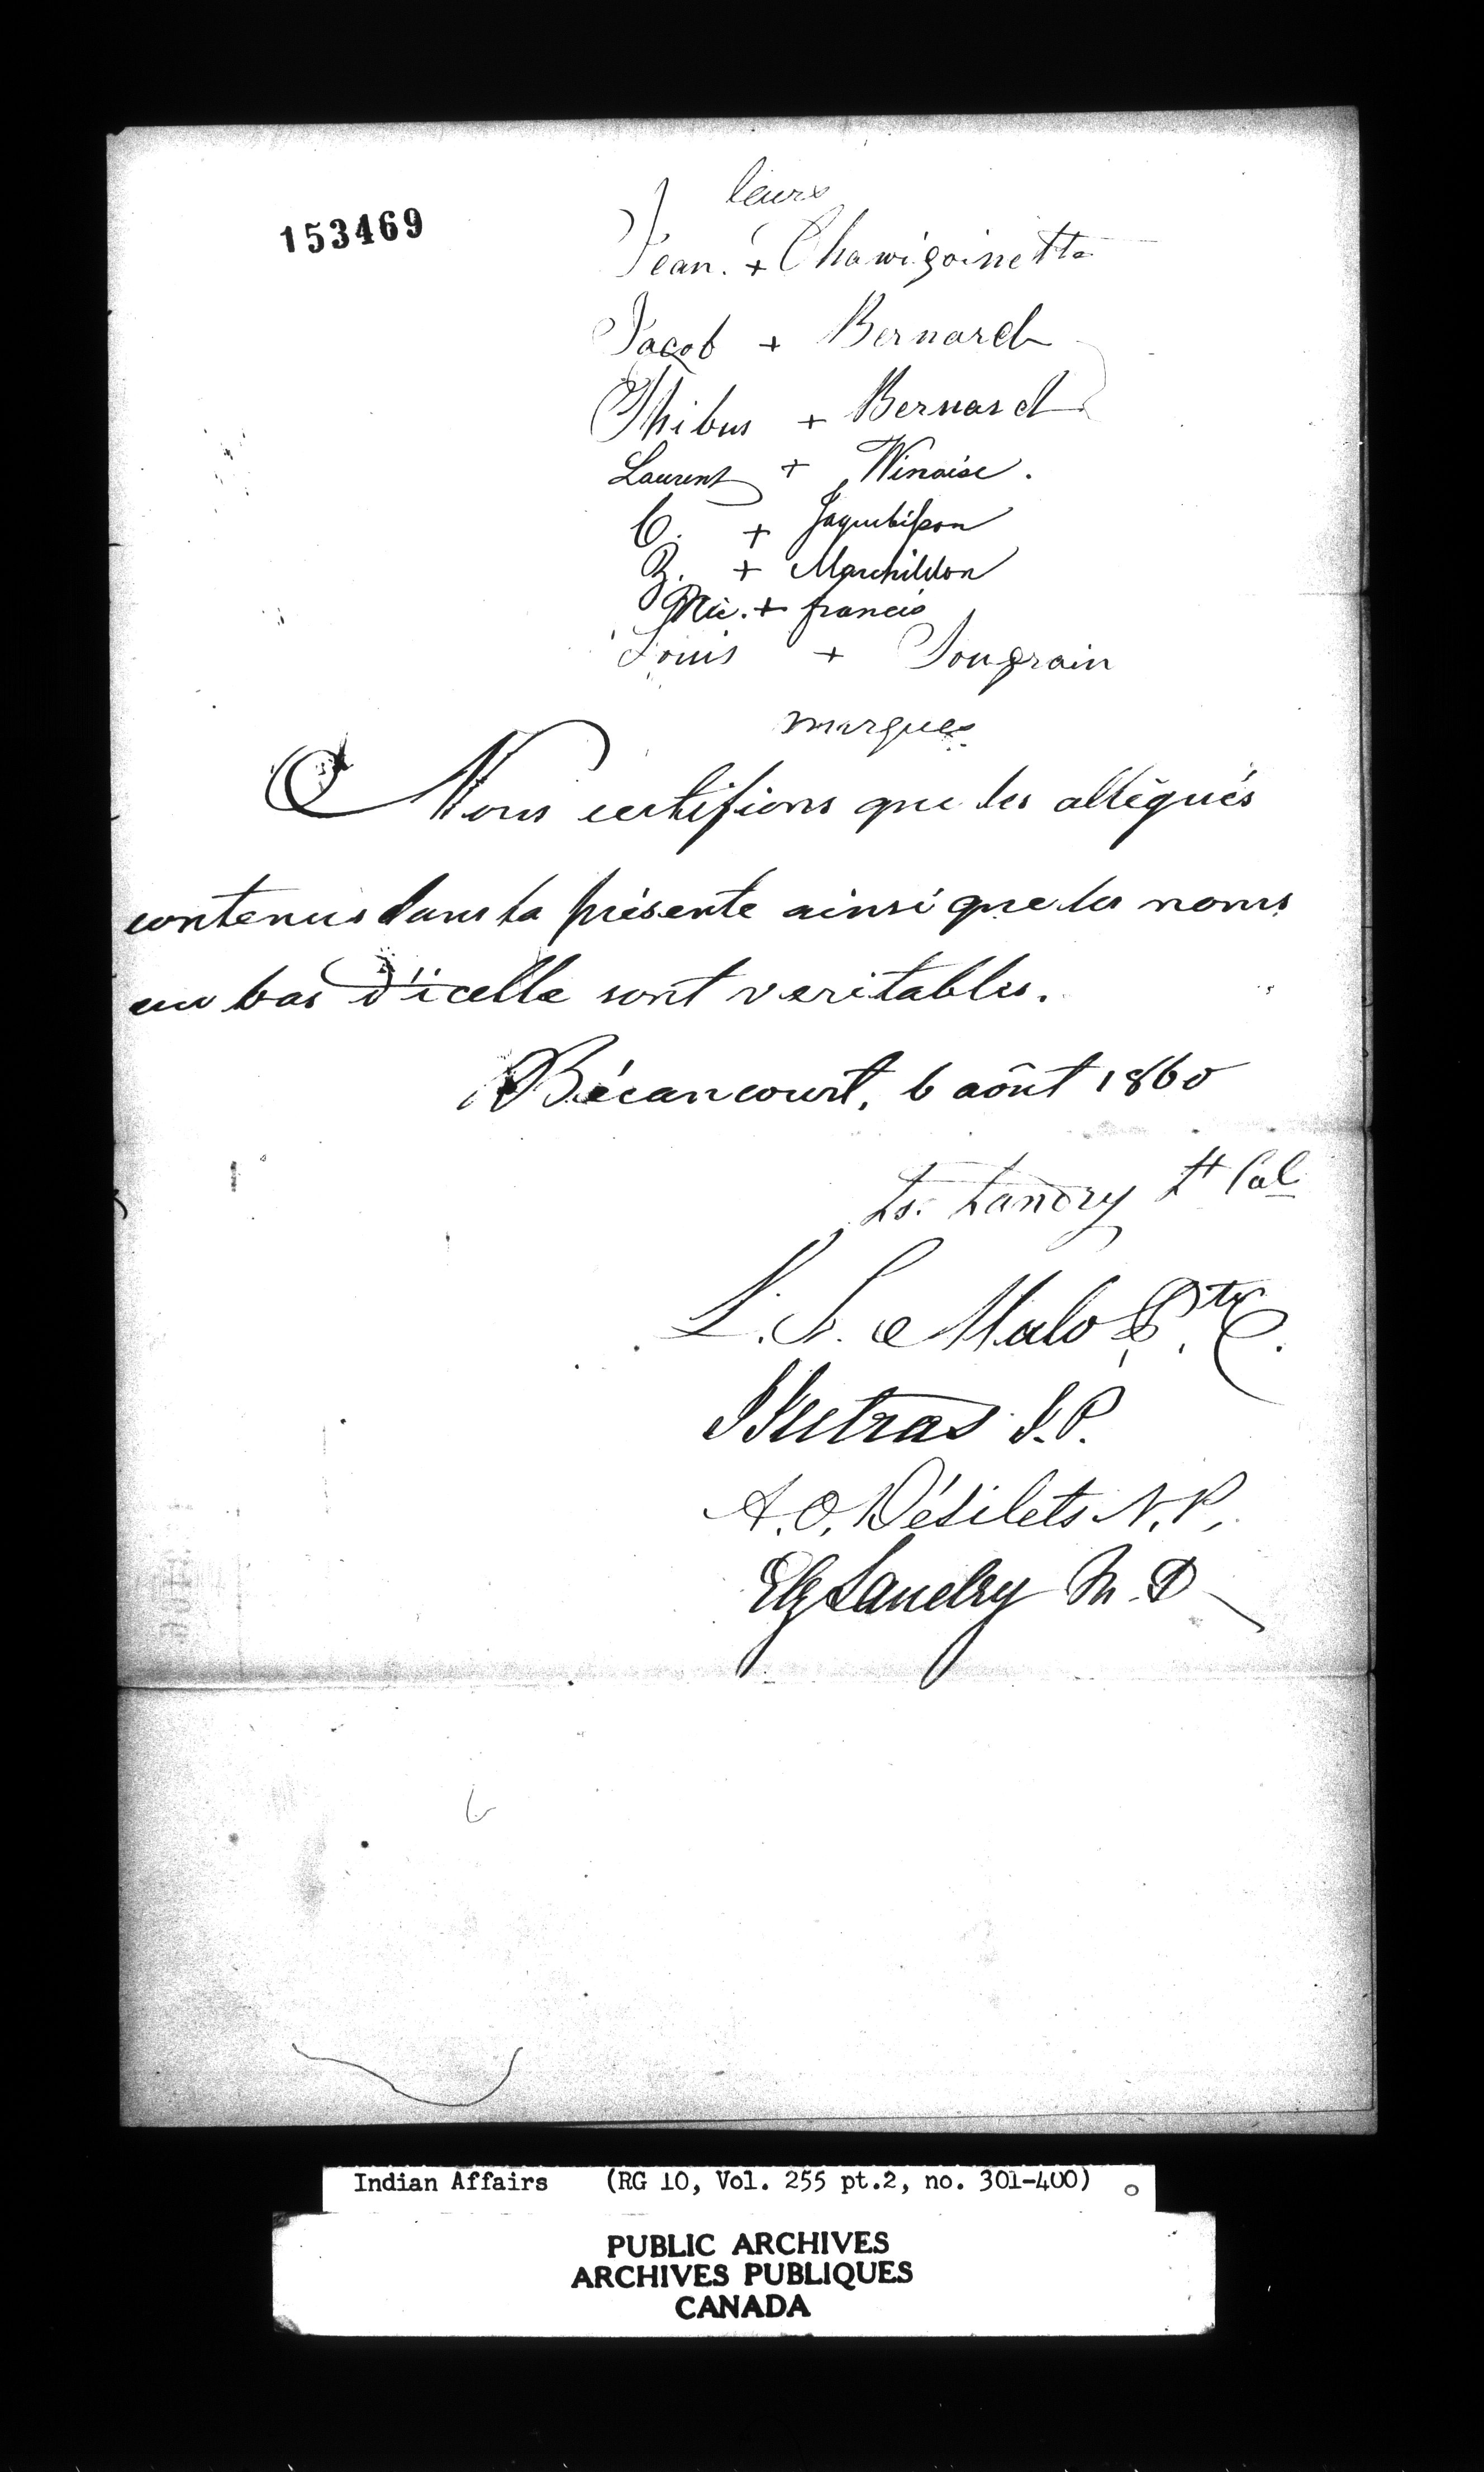 153469
leurs
Jean. + Chawigoinette
Jacob + Bernard
Thibus + Bernard
Laurent + Winaise.
C. + Jaquibisson
Z. + Marchildon
Mie. + francis
Louis + Sougrain
marques
Nous certifions que les allégués
contenus dans la présente ainsi que les noms
au bas d'icelle sont veritables.
Bécancourt, 6 août 1860
Ls. Landry Lt Col
L. S. Malo, Ptre C.
Jutras J.P.
A. O. Désilets N.P.
Elz Landry M.D
Indian Affairs (RG 10, Vol. 255 pt.2, no. 301-400)
PUBLIC ARCHIVES
ARCHIVES PUBLIQUES
CANADA